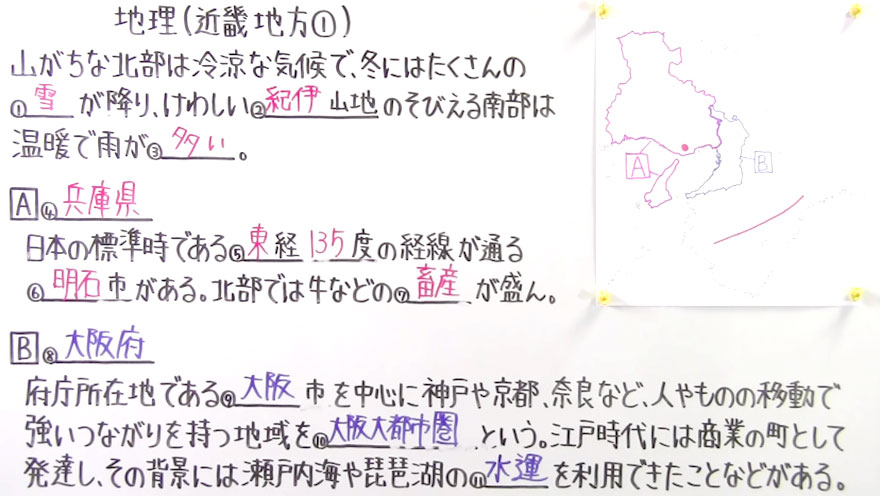 地理(近畿地方①)
山がちな北部は冷涼な気候で、冬にはたくさんの
①雪が降り、けわしい②紀伊山地のそびえる南部は
温暖で雨が③多い。
A ④兵庫県
日本の標準時である⑤東経135度の経線が通る
⑥明石市がある。北部では牛などの⑦畜産が盛ん。
B ⑧大阪府
府庁所在地である⑨大阪市を中心に神戸や京都、奈良など、人やものの移動で
強いつながりを持つ地域を⑩大阪大都市圏という。江戸時代には商業の町として
発達し、その背景には瀬戸内海や琵琶湖の⑪水運を利用できたことなどがある。
A
B